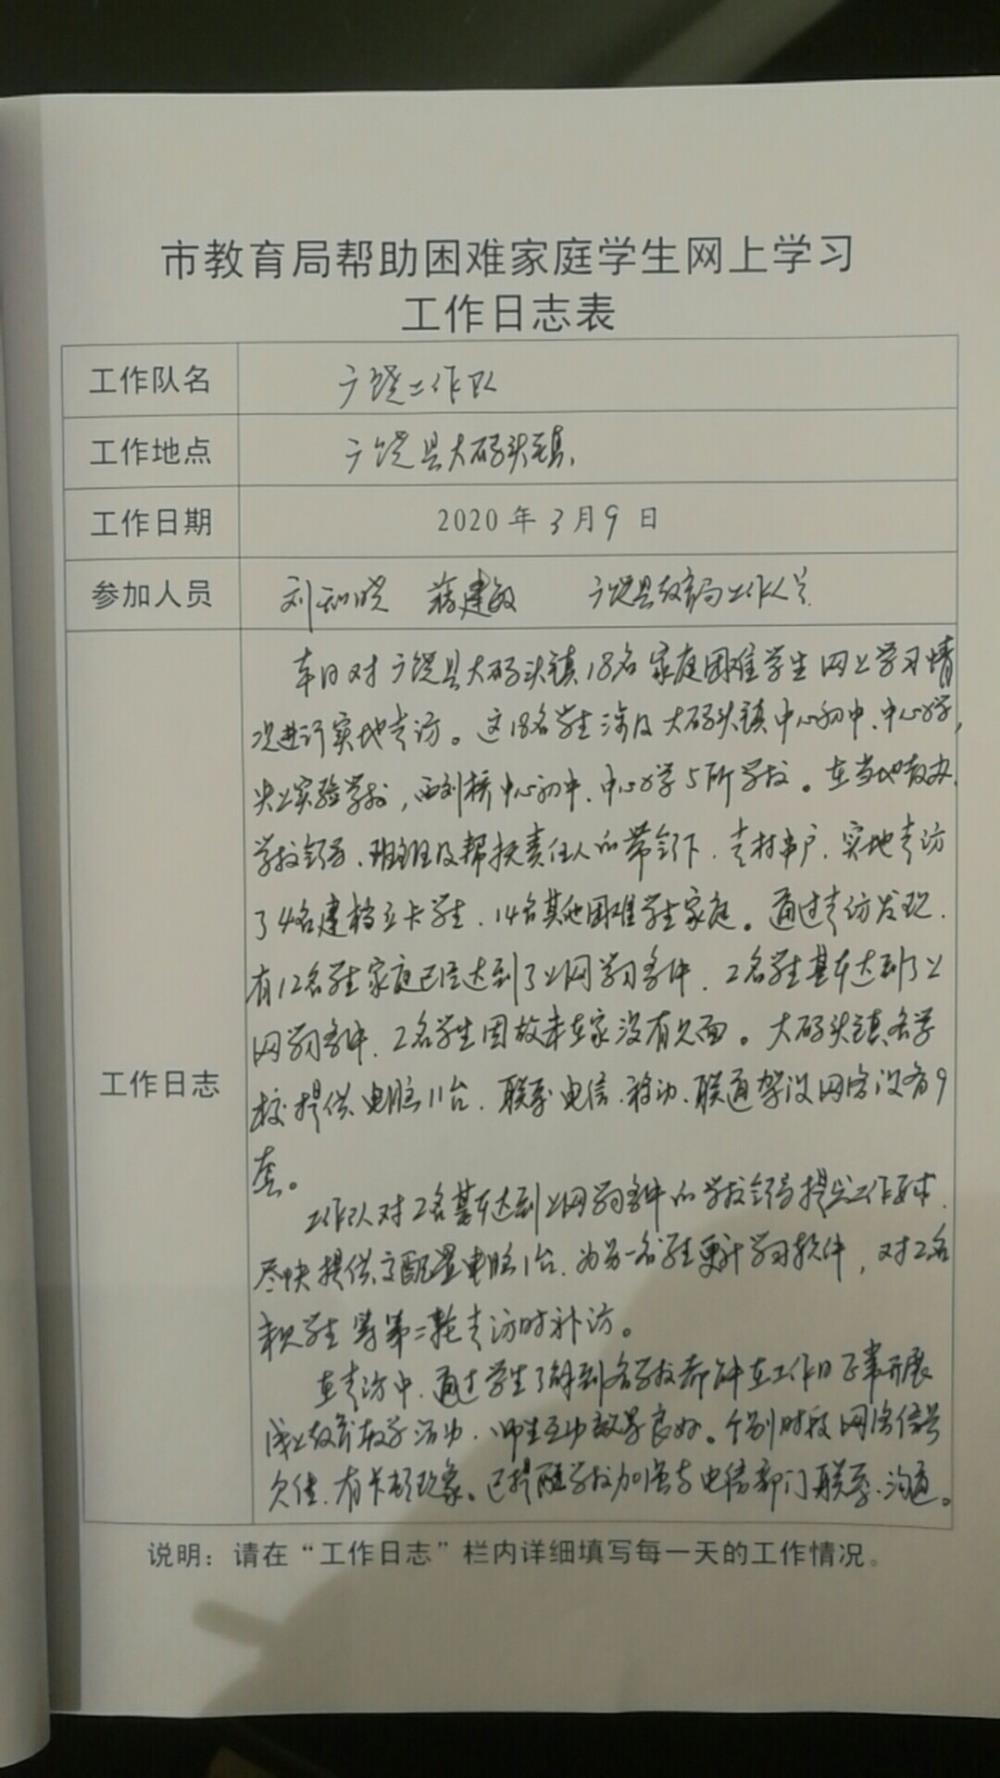 市教育局帮助困难家庭学生网上学习
工作日志表
工作队名 广饶工作队
工作地点 广饶县大码头镇
工作日期 2020年3月9日
参加人员 刘和晓 蒋建敏 广饶县教育局工作人员
工作日志
本日对广饶县大码头镇18名家庭困难学生网上学习情
况进行实地走访。这18名学生涉及大码头镇中心初中、中心小学,
央上实验学校,西刘桥中心初中、中心小学5所学校。在当地教办、
学校领导、班主任及帮扶责任人的带领下,走村串户,实地走访
了4名建档立卡学生,14名其他困难学生家庭。通过走访发现,
有12名学生家庭已经达到了上网学习条件,2名学生基本达到了上
网学习条件,2名学生因故未在家没有见面。大码头镇各学
校提供电脑11台,联系电信、移动、联通架设网络设备9
套。
工作队对2名基本达到上网学习条件的学校领导提出工作要求,
尽快提供配置电脑1台,为另一名学生更新学习软件,对2名
未见学生等第二轮走访时补访。
在走访中,通过学生了解到各学校都能在工作日正常开展
线上教育教学活动,师生互动效果良好。个别时段网络信号
欠佳,有卡顿现象。已提醒学校加强与电信部门联系、沟通。
说明:请在“工作日志”栏内详细填写每一天的工作情况。